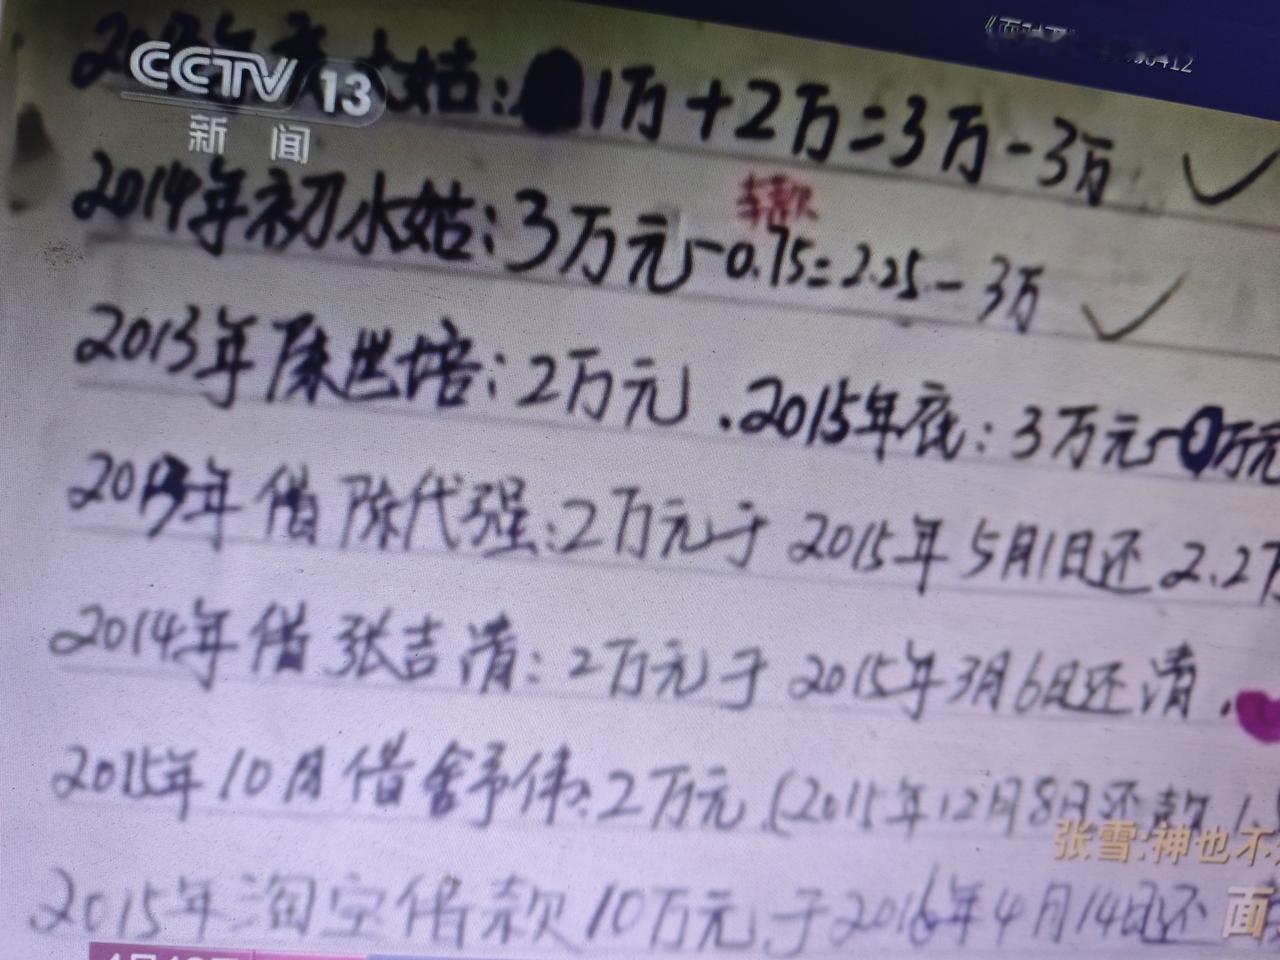 CCTV 13
新闻
姑: 1万+2万=3万-3万 ✓
车款
2014年初水姑:3万元-0.75=2.25-3万 ✓
2013年陈世培:2万元.2015年底:3万元 万元
2013年借陈代强:2万元于2015年5月1日还2.2万
2014年借张吉清:2万元于2015年3月6日还清.
2015年10月借舒伟:2万元(2015年12月8日还款1.
张雪:神也不
2015年淘宝借款10万元于2016年4月14日还
面